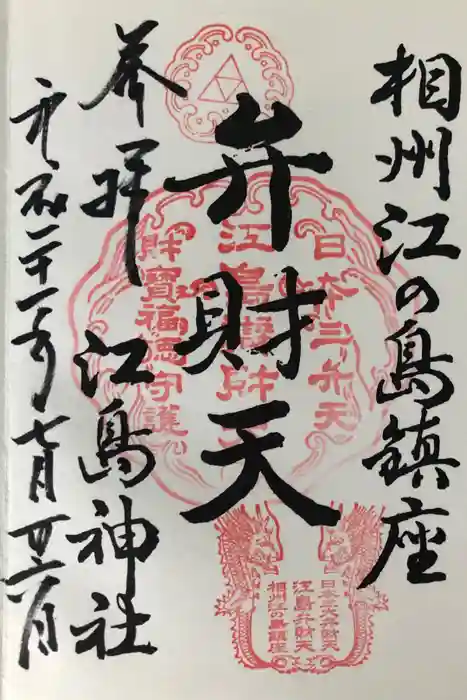 相州江の島鎮座
弁財天
奉拝 江島神社
平成二十一年七月廿六日
日本三弁天
江島辯財天
財寶福徳守護
日本三大弁財天
江島弁財天
相州江の島鎮座